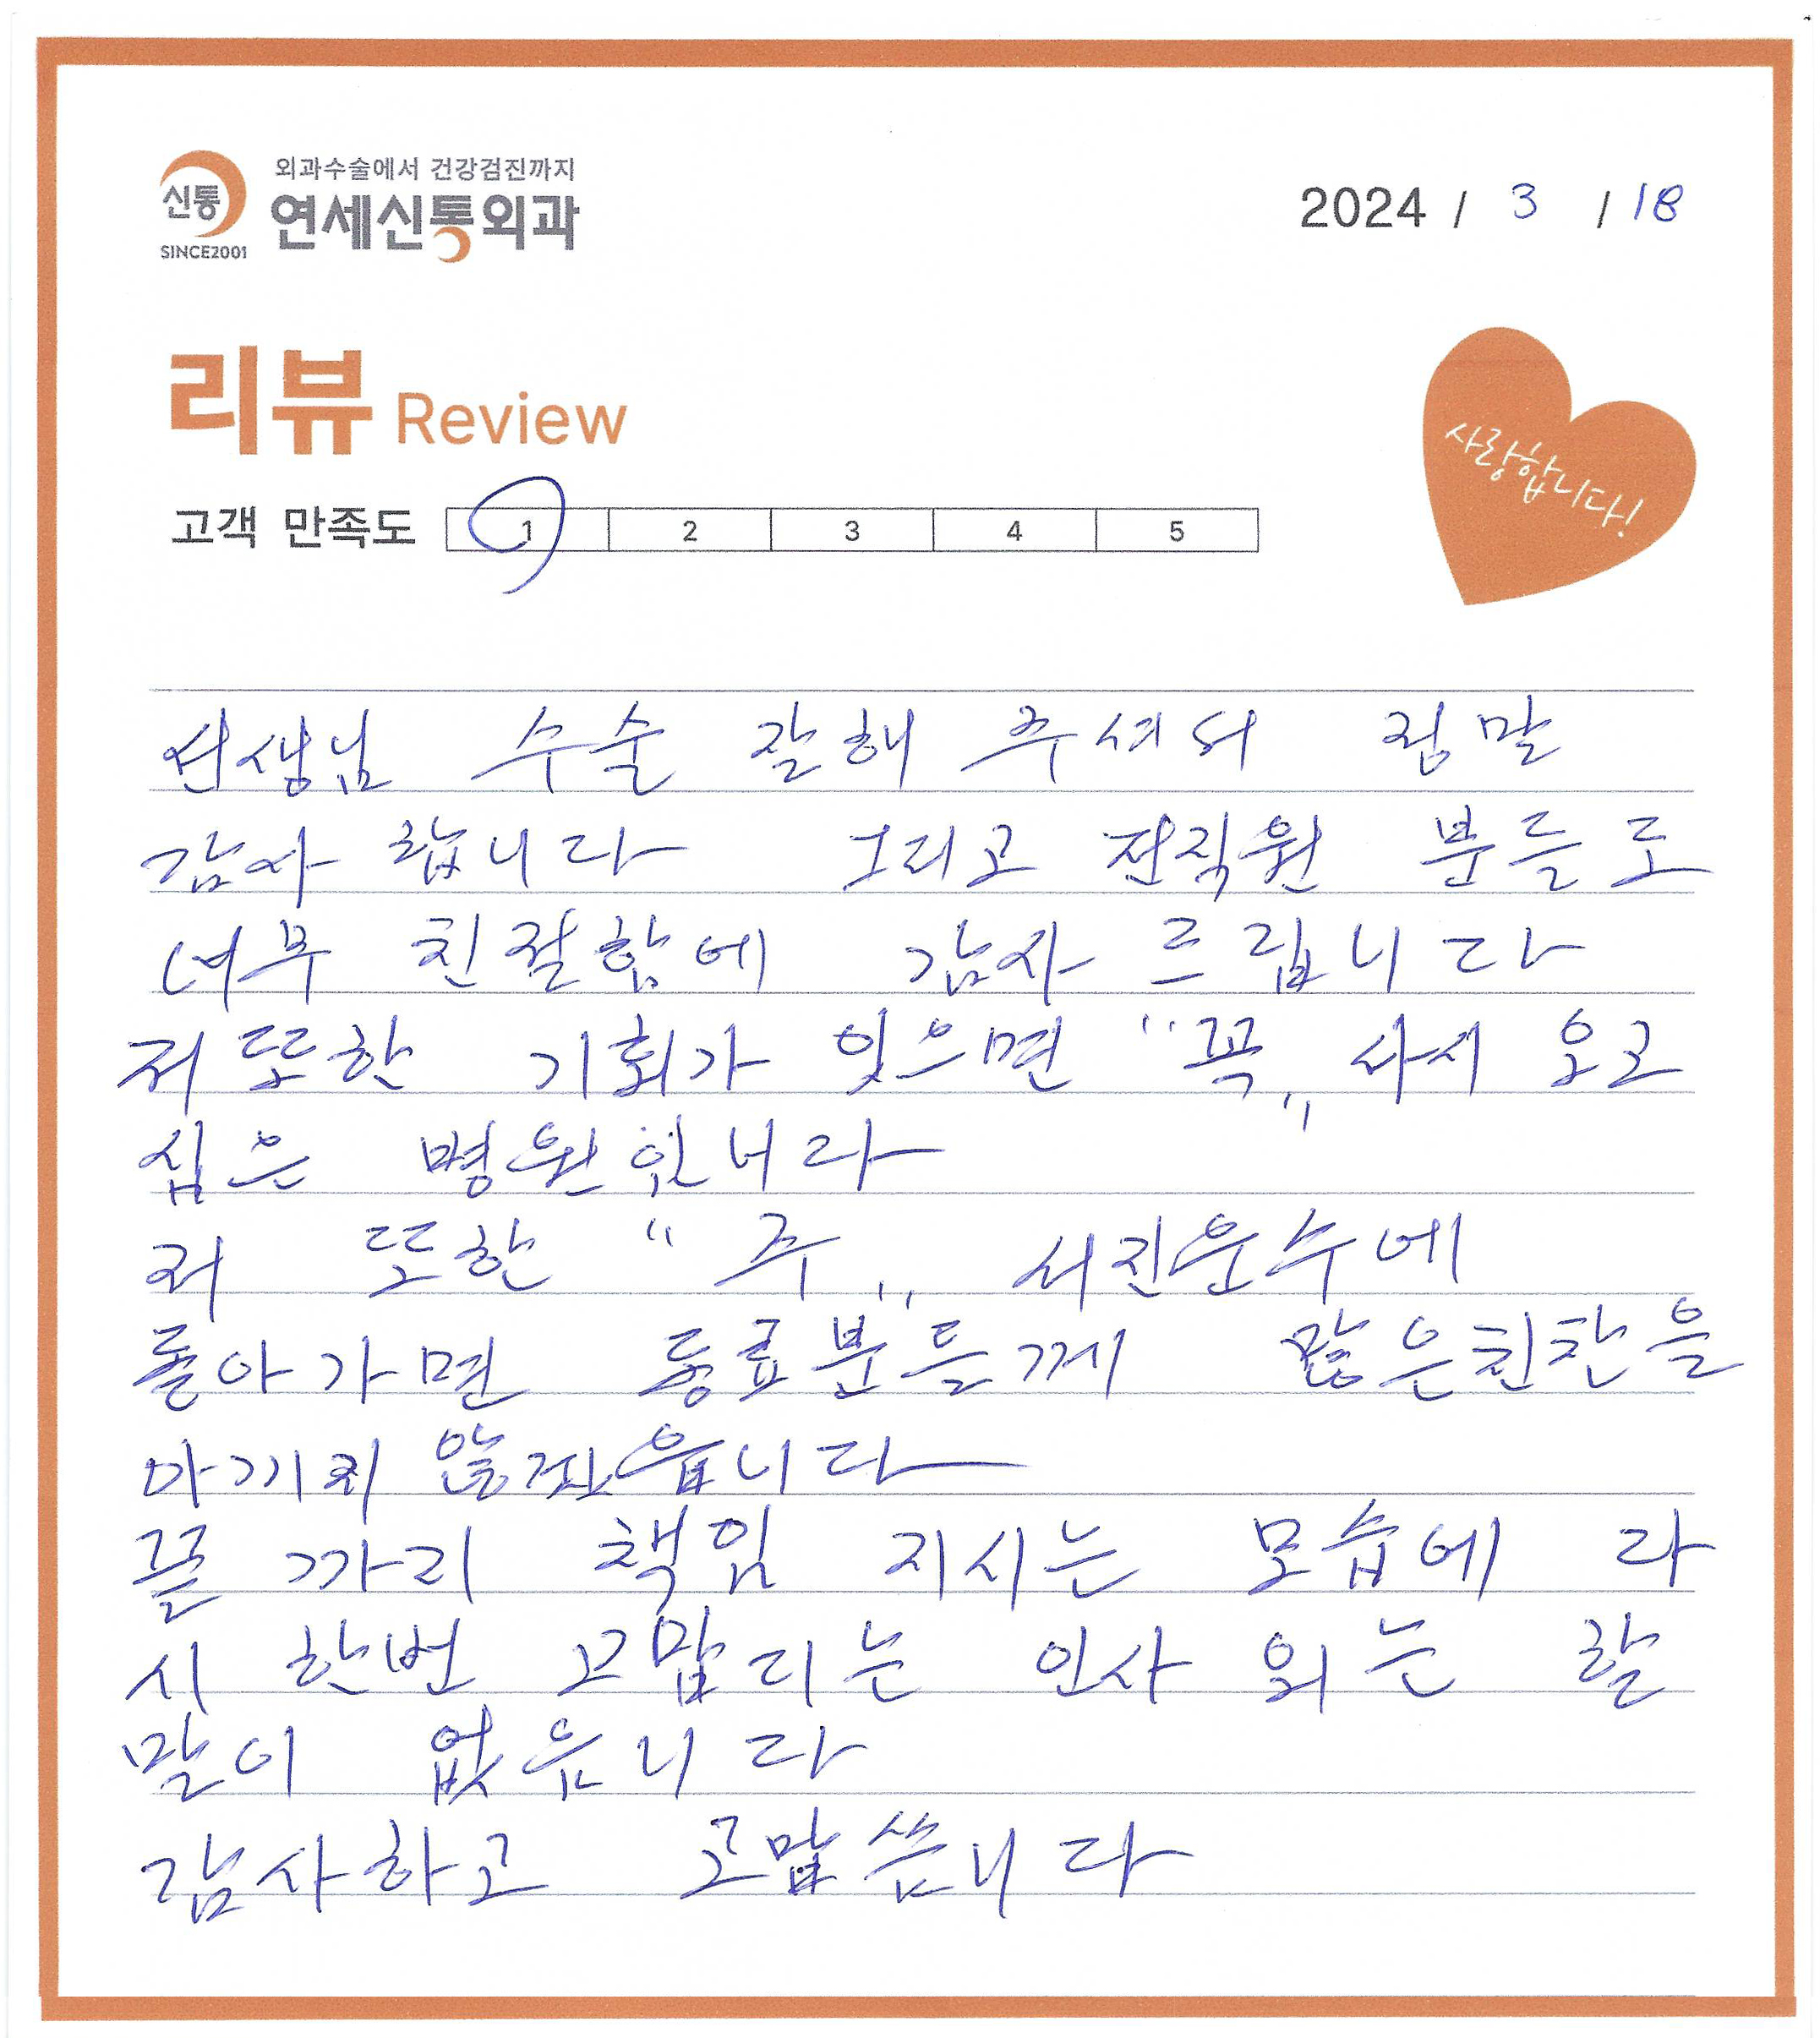 외과수술에서 건강검진까지
신통 연세신통외과
SINCE2001
2024 / 3 / 18
리뷰 Review
사랑합니다!
고객 만족도 1 2 3 4 5
선생님 수술 잘해 주셔서 정말
감사 합니다 그리고 전직원 분들도
너무 친절함에 감사 드립니다
저 또한 기회가 잊으면 "꼭" 오고
십은 병원입니다
저 또한 "주" 서진운수에
돌아가면 동료분들께 많은친찬을
아끼지
끝까지 책임 지시는 모습에 다
시 한번 고맙다는 인사 외는 할
말이 없읍니다
감사하고 고맙씁니다